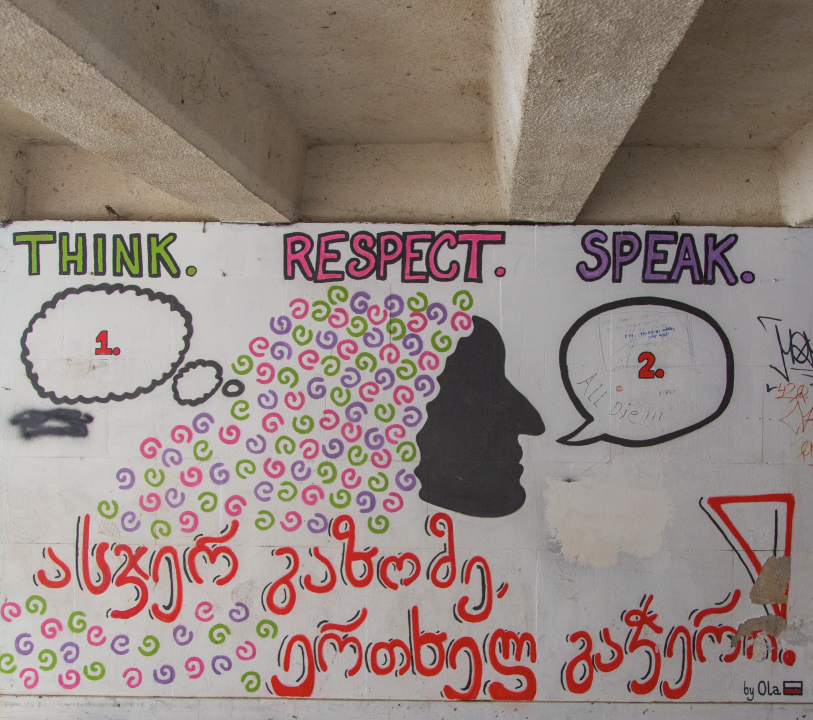 THINK. RESPECT. SPEAK.
1.
2.
All Die!!!
ასჯერ გაზომე,
ერთხელ გაჭერი!
by Ola